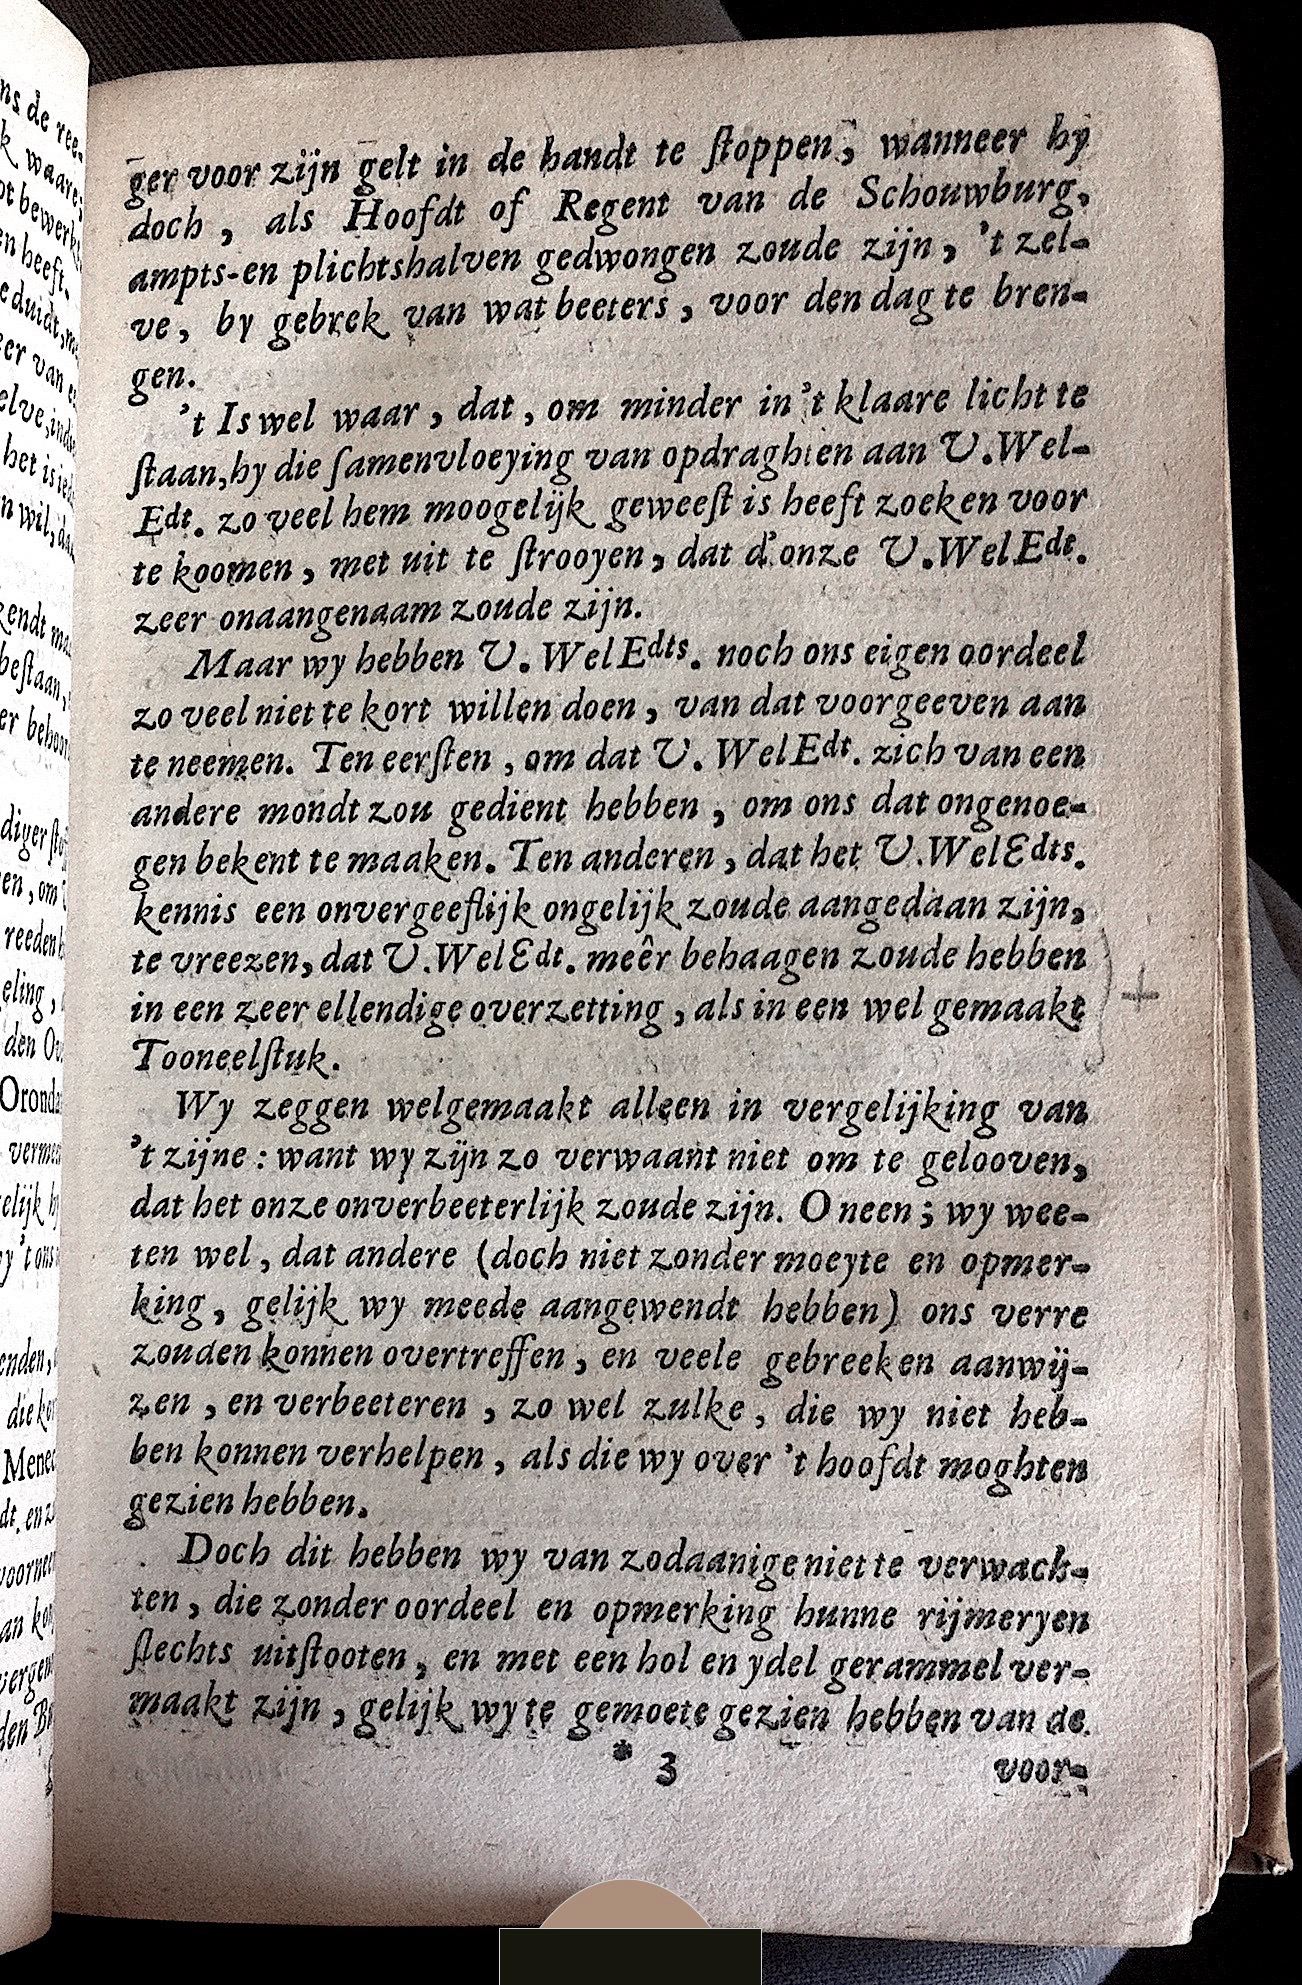 ger voor zijn gelt in de handt te ſtoppen, wanneer hy
doch, als Hoofdt of Regent van de Schouwburg,
ampts-en plichtshalven gedwongen zoude zijn, 't zel-
ve, by gebrek van wat beeters, voor den dag te bren-
gen.
't Is wel waar, dat, om minder in 't klaare licht te
ſtaan, hy die ſamenvloeying van opdraghten aan U.Wel-
Edt. zo veel hem moogelijk geweeſt is heeft zoeken voor
te koomen, met uit te ſtrooyen, dat d'onze U.WelEdt.
zeer onaangenaam zoude zijn.
Maar wy hebben U. WelEdts. noch ons eigen oordeel
zo veel niet te kort willen doen, van dat voorgeeven aan
te neemen. Ten eerſten, om dat U. WelEdt. zich van een
andere mondt zou gedient hebben, om ons dat ongenoe-
gen bekent te maaken. Ten anderen, dat het U.WelEdts.
kennis een onvergeeflijk ongelijk zoude aangedaan zijn,
te vreezen, dat U.WelEdt. meêr behaagen zoude hebben
in een zeer ellendige overzetting, als in een wel gemaakt
Tooneelſtuk.
Wy zeggen welgemaakt alleen in vergelijking van
't zijne: want wy zijn zo verwaant niet om te gelooven,
dat het onze onverbeeterlijk zoude zijn. O neen; wy wee-
ten wel, dat andere (doch niet zonder moeyte en opmer-
king, gelijk wy meede aangewendt hebben) ons verre
zouden konnen overtreffen, en veele gebreeken aanwij-
zen, en verbeeteren, zo wel zulke, die wy niet heb-
ben konnen verhelpen, als die wy over 't hoofdt moghten
gezien hebben.
Doch dit hebben wy van zodaanige niet te verwach-
ten, die zonder oordeel en opmerking hunne rijmeryen
ſlechts uitſtooten, en met een hol en ydel gerammel ver-
maakt zijn, gelijk wy te gemoete gezien hebben van de
* 3 voor-